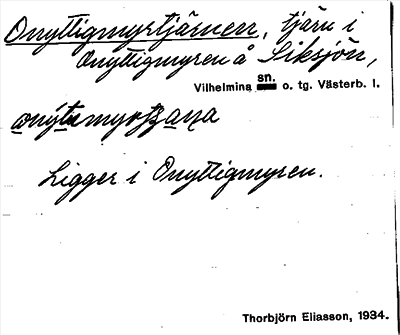 Onyttigmyrtjärnen, tjärn i
Onyttigmyren å Siksjön,
Vilhelmina sn. o. tg. Västerb. l.
Ligger i Onyttigmyren.
Thorbjörn Eliasson, 1934.